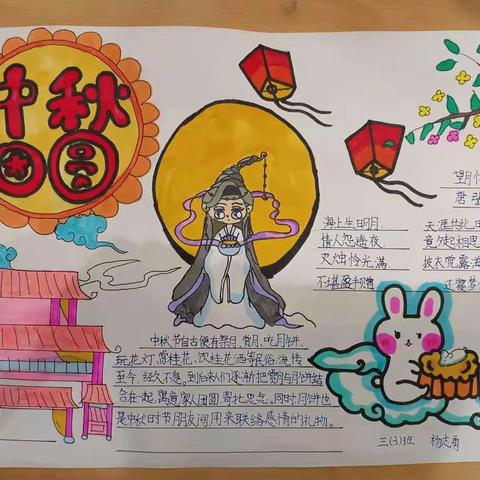 中秋
团圆
望月
唐 张
海上生明月,
天涯共此
情人怨遥夜,
竟夕起相思
灭烛怜光满,
披衣觉露
不堪盈手赠
还寝梦
中秋节自古便有祭月、赏月、吃月饼、
玩花灯、赏桂花、饮桂花酒等民俗,流传
至今,经久不息。到后来人们逐渐把赏月与月饼结
合在一起,寓意家人团圆,寄托思念。同时月饼也
是中秋时节朋友间用来联络感情的礼物。
三(3)班 杨志勇